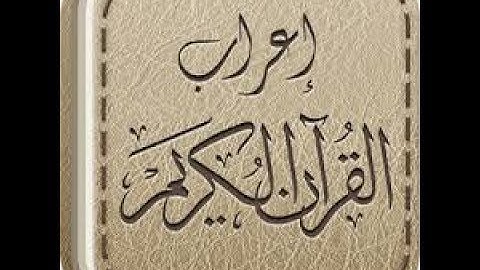 إعراب
القُرآن الكَريم